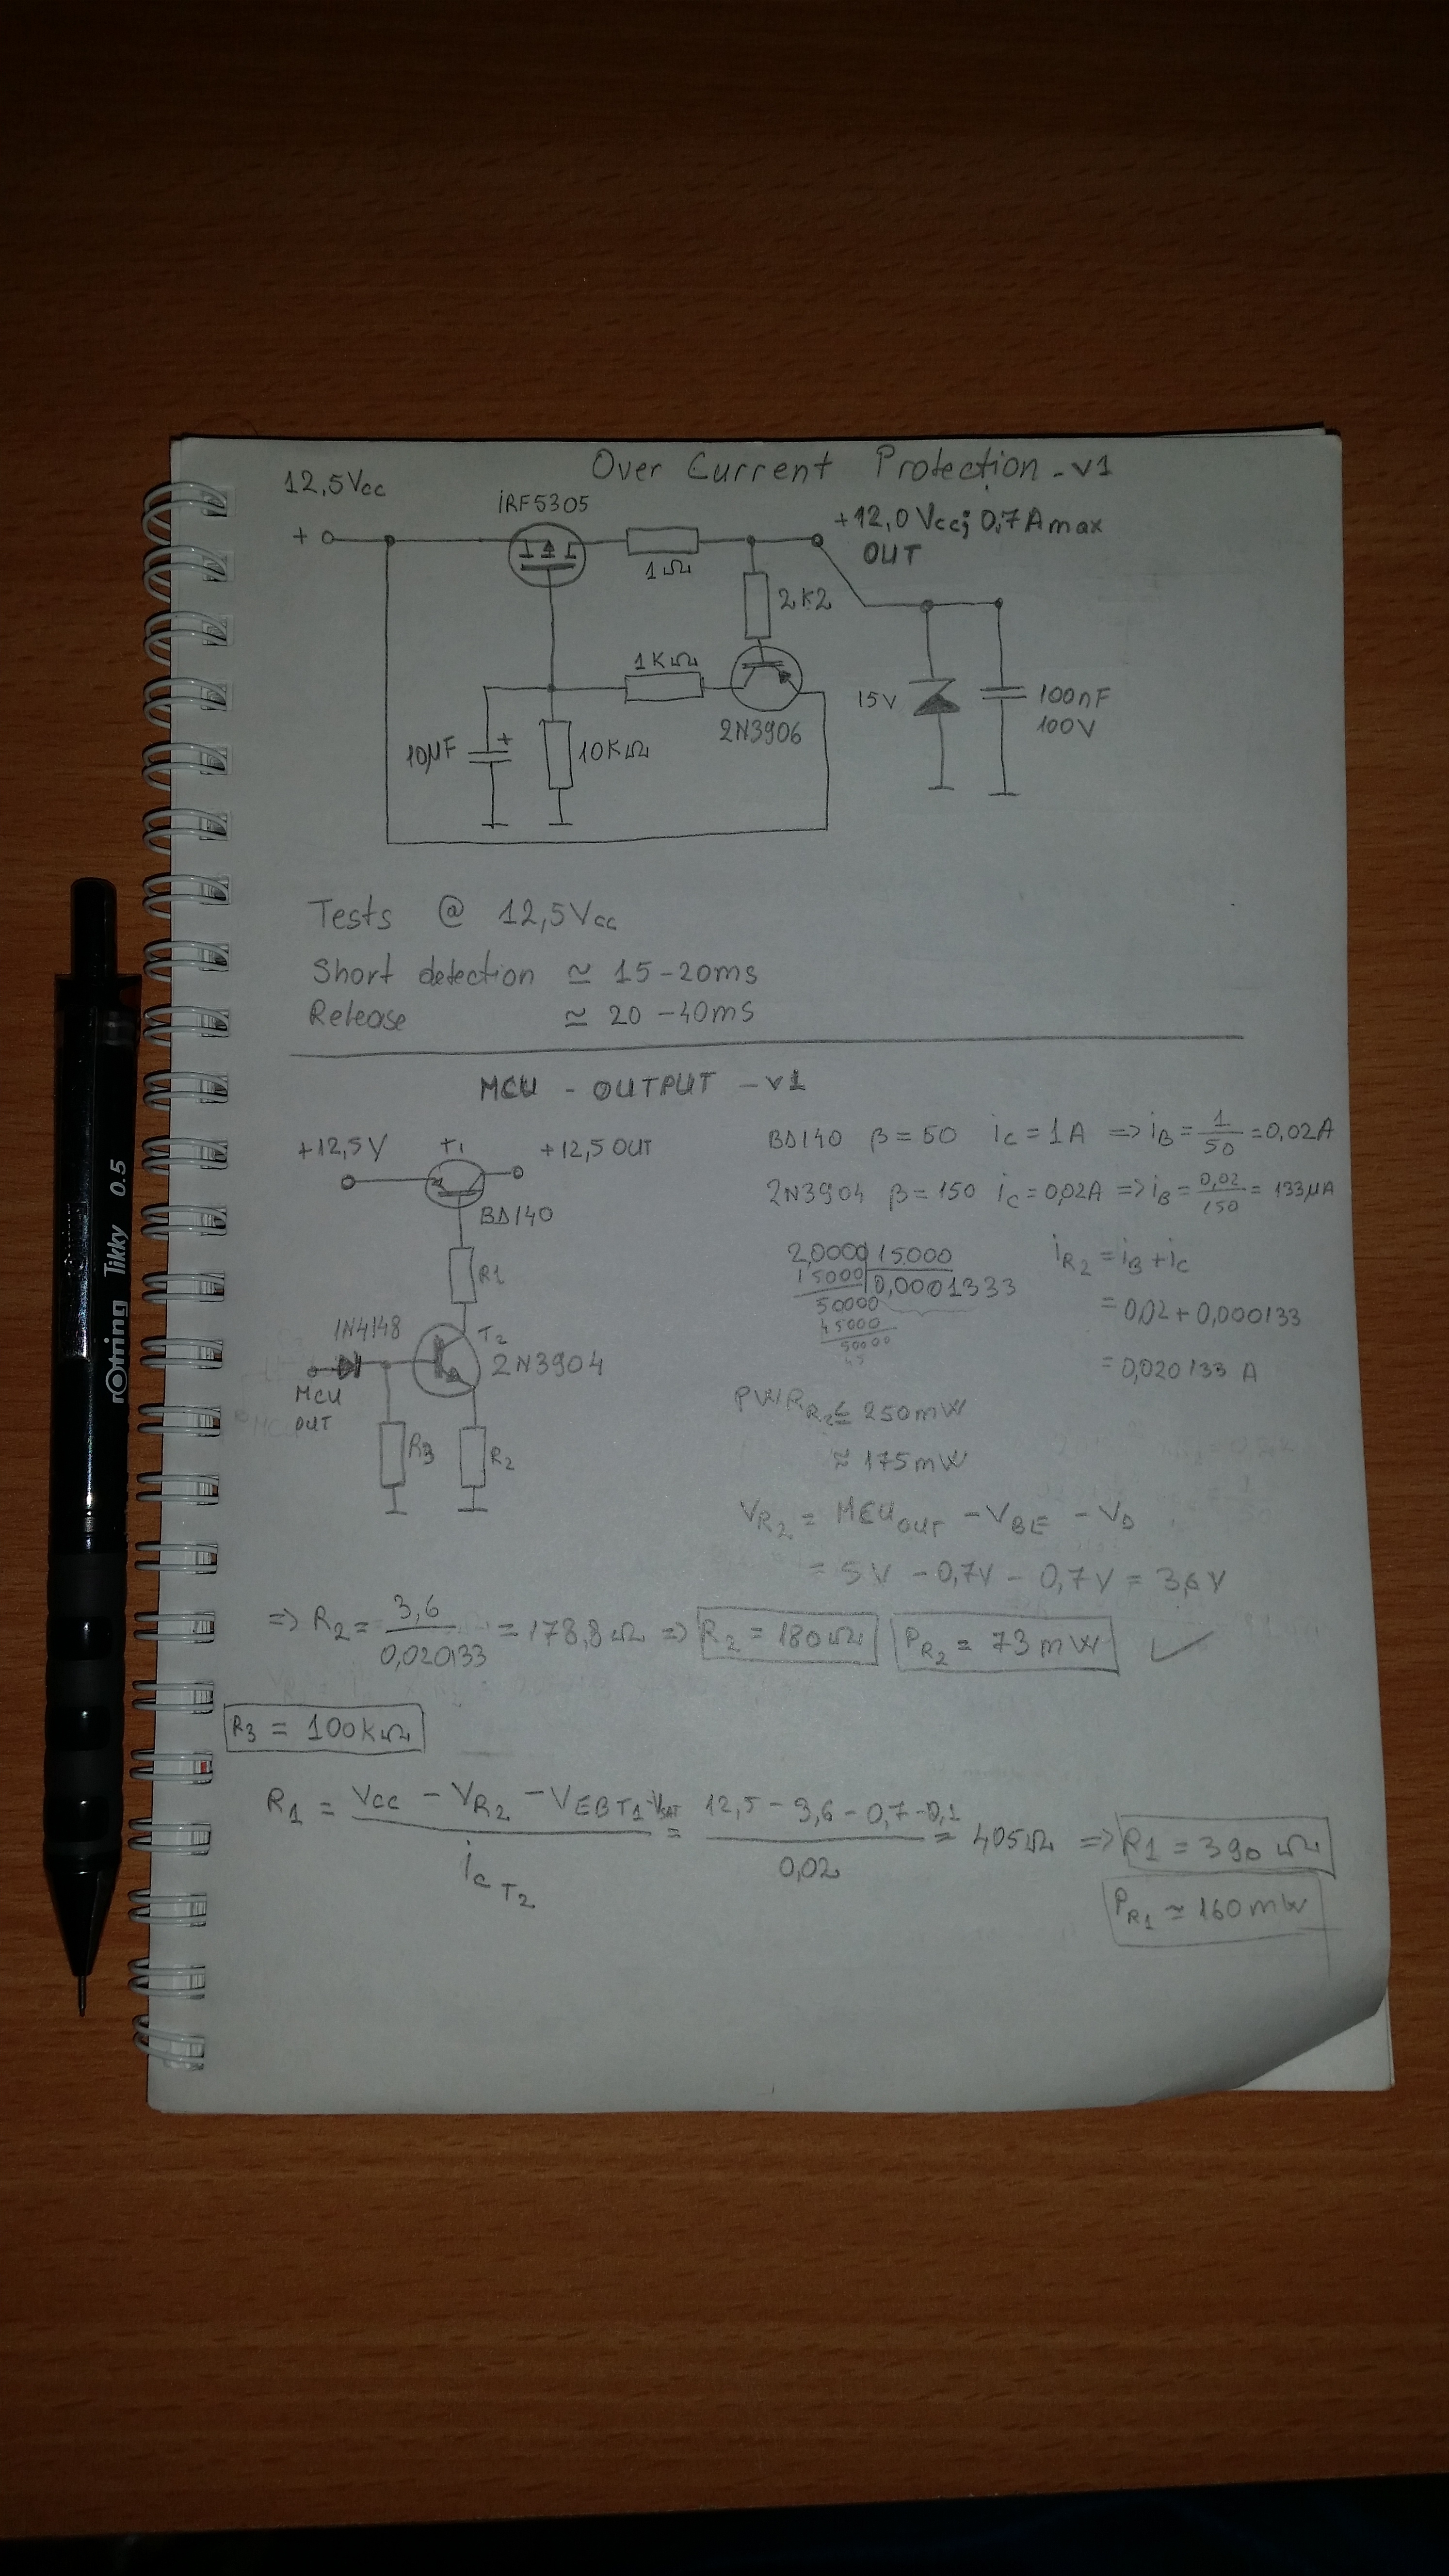 Over Current Protection - v1
12,5Vcc
iRF5305
+12,0 Vcc; 0.7A max
OUT
+
1Ω
2K2
1KΩ
2N3906
10μF
+
10KΩ
15V
100nF
100V
Tests @ 12,5Vcc
Short detection ≃ 15-20ms
Release ≃ 20-40ms
MCU - OUTPUT - v1
+12,5V
T1
+12,5 OUT
BD140
R1
1N4148
T2
2N3904
MCU
OUT
R3
R2
BD140 β=50 ic=1A => iB = 1/50 = 0,02A
2N3904 β=150 ic=0,02A => iB = 0,02/150 = 133μA
2,0000 15000
15000 0,0001333
50000
45000
50000
45
iR2 = iB + ic
= 0,02 + 0,000133
= 0,020133 A
PWR R2 ≤ 250mW
≈ 175mW
VR2 = MCU OUT - VBE - VD
= 5V - 0,7V - 0,7V = 3,6V
=> R2 = 3,6/0,020133 = 178,8Ω => R2 = 180Ω PR2 = 73mW ✓
R3 = 100kΩ
R1 = (Vcc - VR2 - VEBT1 - VSAT)/icT2 = (12,5 - 3,6 - 0,7 - 0,1)/0,02 = 405Ω => R1 = 390Ω
PR1 ≃ 160mW
rotring Tikky 0.5